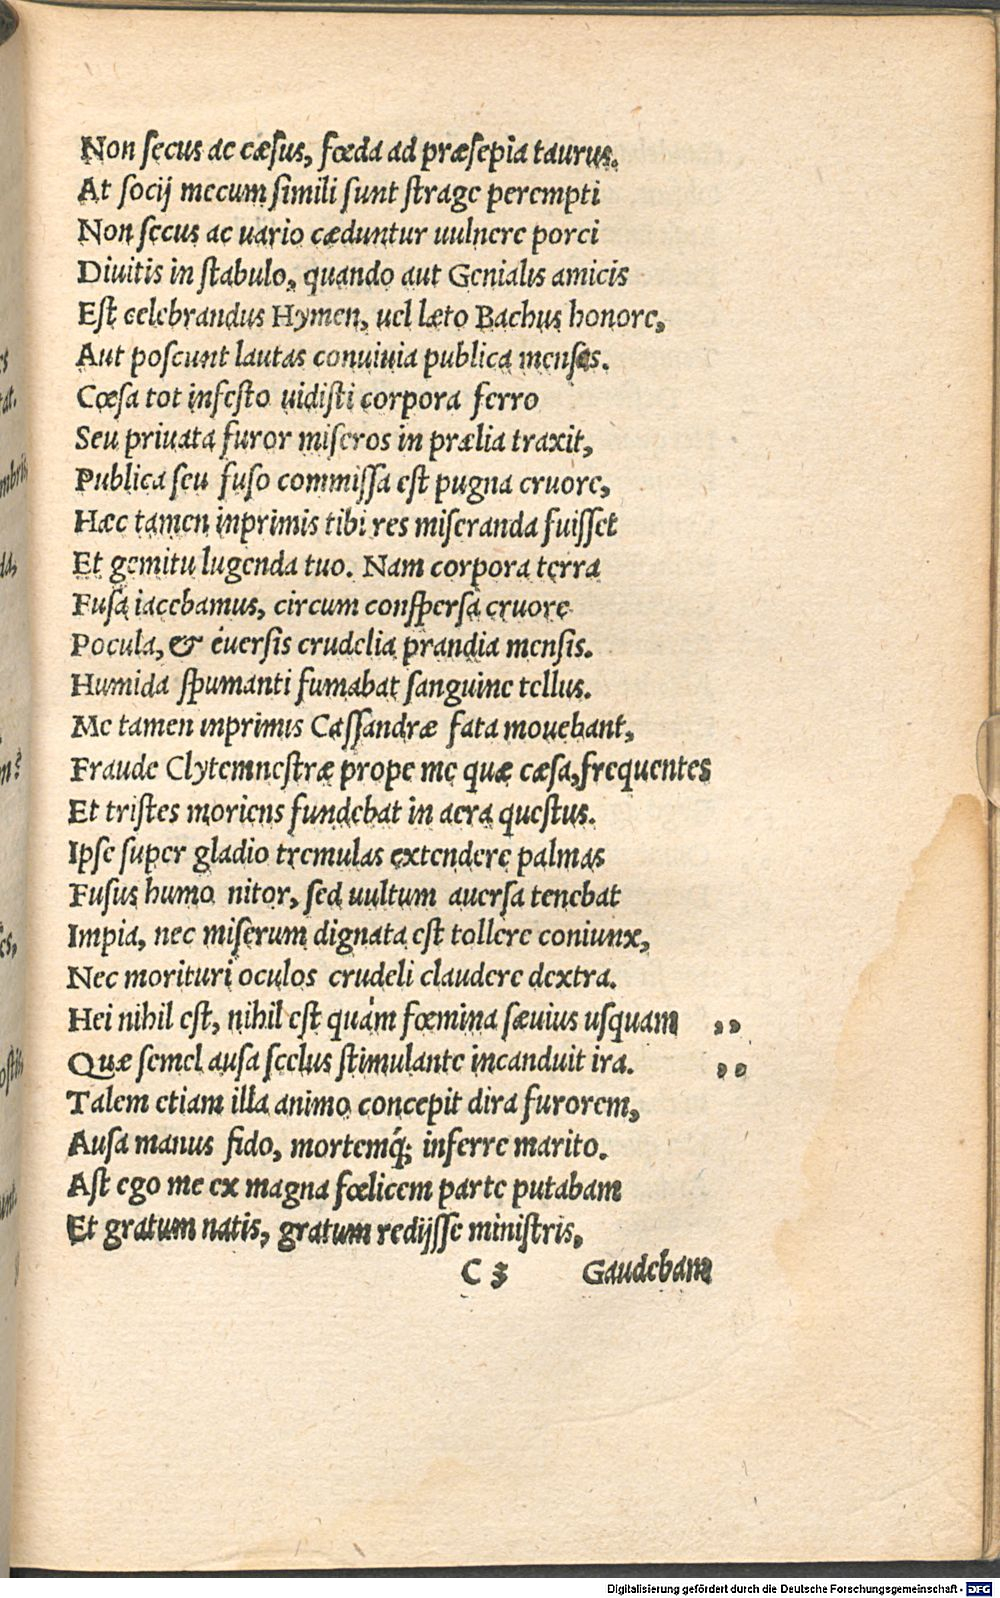 Non ſecus ac cæſus, fœda ad præſepia taurus.
At ſocij mecum ſimili ſunt ſtrage perempti
Non ſecus ac uario cæduntur uulnere porci
Diuitis in ſtabulo, quando aut Genialis amicis
Eſt celebrandus Hymen, uel læto Bachus honore,
Aut poſcunt lautas conuiuia publica menſes.
Cœſa tot infeſto uidiſti corpora ferro
Seu priuata furor miſeros in prælia traxit,
Publica ſeu fuſo commiſſa eſt pugna cruore,
Hæc tamen inprimis tibi res miſeranda fuiſſet
Et gemitu lugenda tuo. Nam corpora terra
Fuſa iacebamus, circum conſperſa cruore
Pocula, & euerſis crudelia prandia menſis.
Humida ſpumanti fumabat ſanguine tellus.
Me tamen inprimis Caſſandræ fata mouebant,
Fraude Clytemneſtræ prope me quæ cæſa, frequentes
Et triſtes moriens fundebat in aera queſtus.
Ipſe ſuper gladio tremulas extendere palmas
Fuſus humo nitor, ſed uultum auerſa tenebat
Impia, nec miſerum dignata eſt tollere coniunx,
Nec morituri oculos crudeli claudere dextra.
Hei nihil eſt, nihil eſt quàm fœmina ſæuius uſquam ,,
Quæ ſemel auſa ſcelus ſtimulante incanduit ira. ,,
Talem etiam illa animo concepit dira furorem,
Auſa manus fido, mortemq́; inferre marito.
Aſt ego me ex magna fœlicem parte putabam
Et gratum natis, gratum redijſſe miniſtris,
C 3 Gaudebam
Digitalisierung gefördert durch die Deutsche Forschungsgemeinschaft - DFG